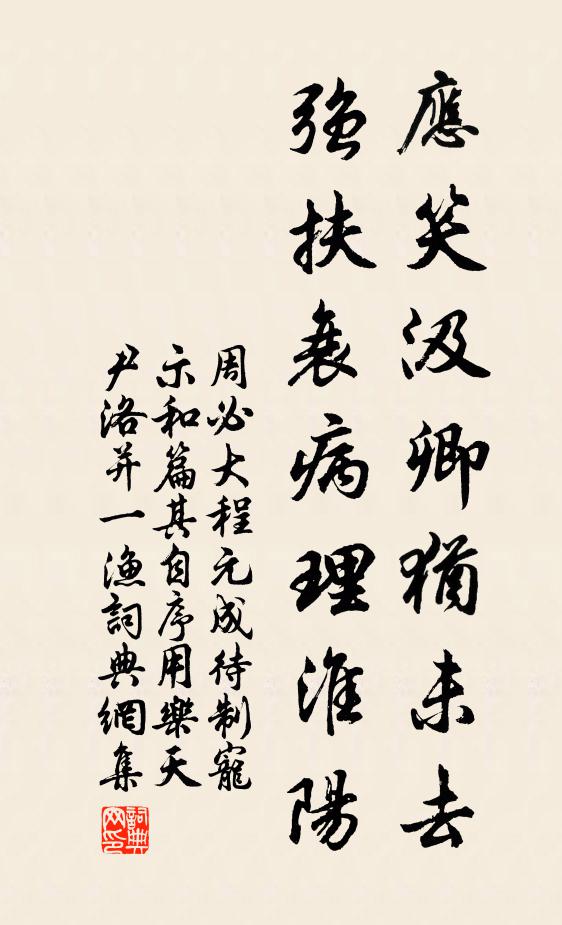 應笑汲卿猶未去
強扶衰病理淮陽
周必大程元成待制寵
示和篇其自序用樂天
尹洛并一漁詞典網集
詞典网印